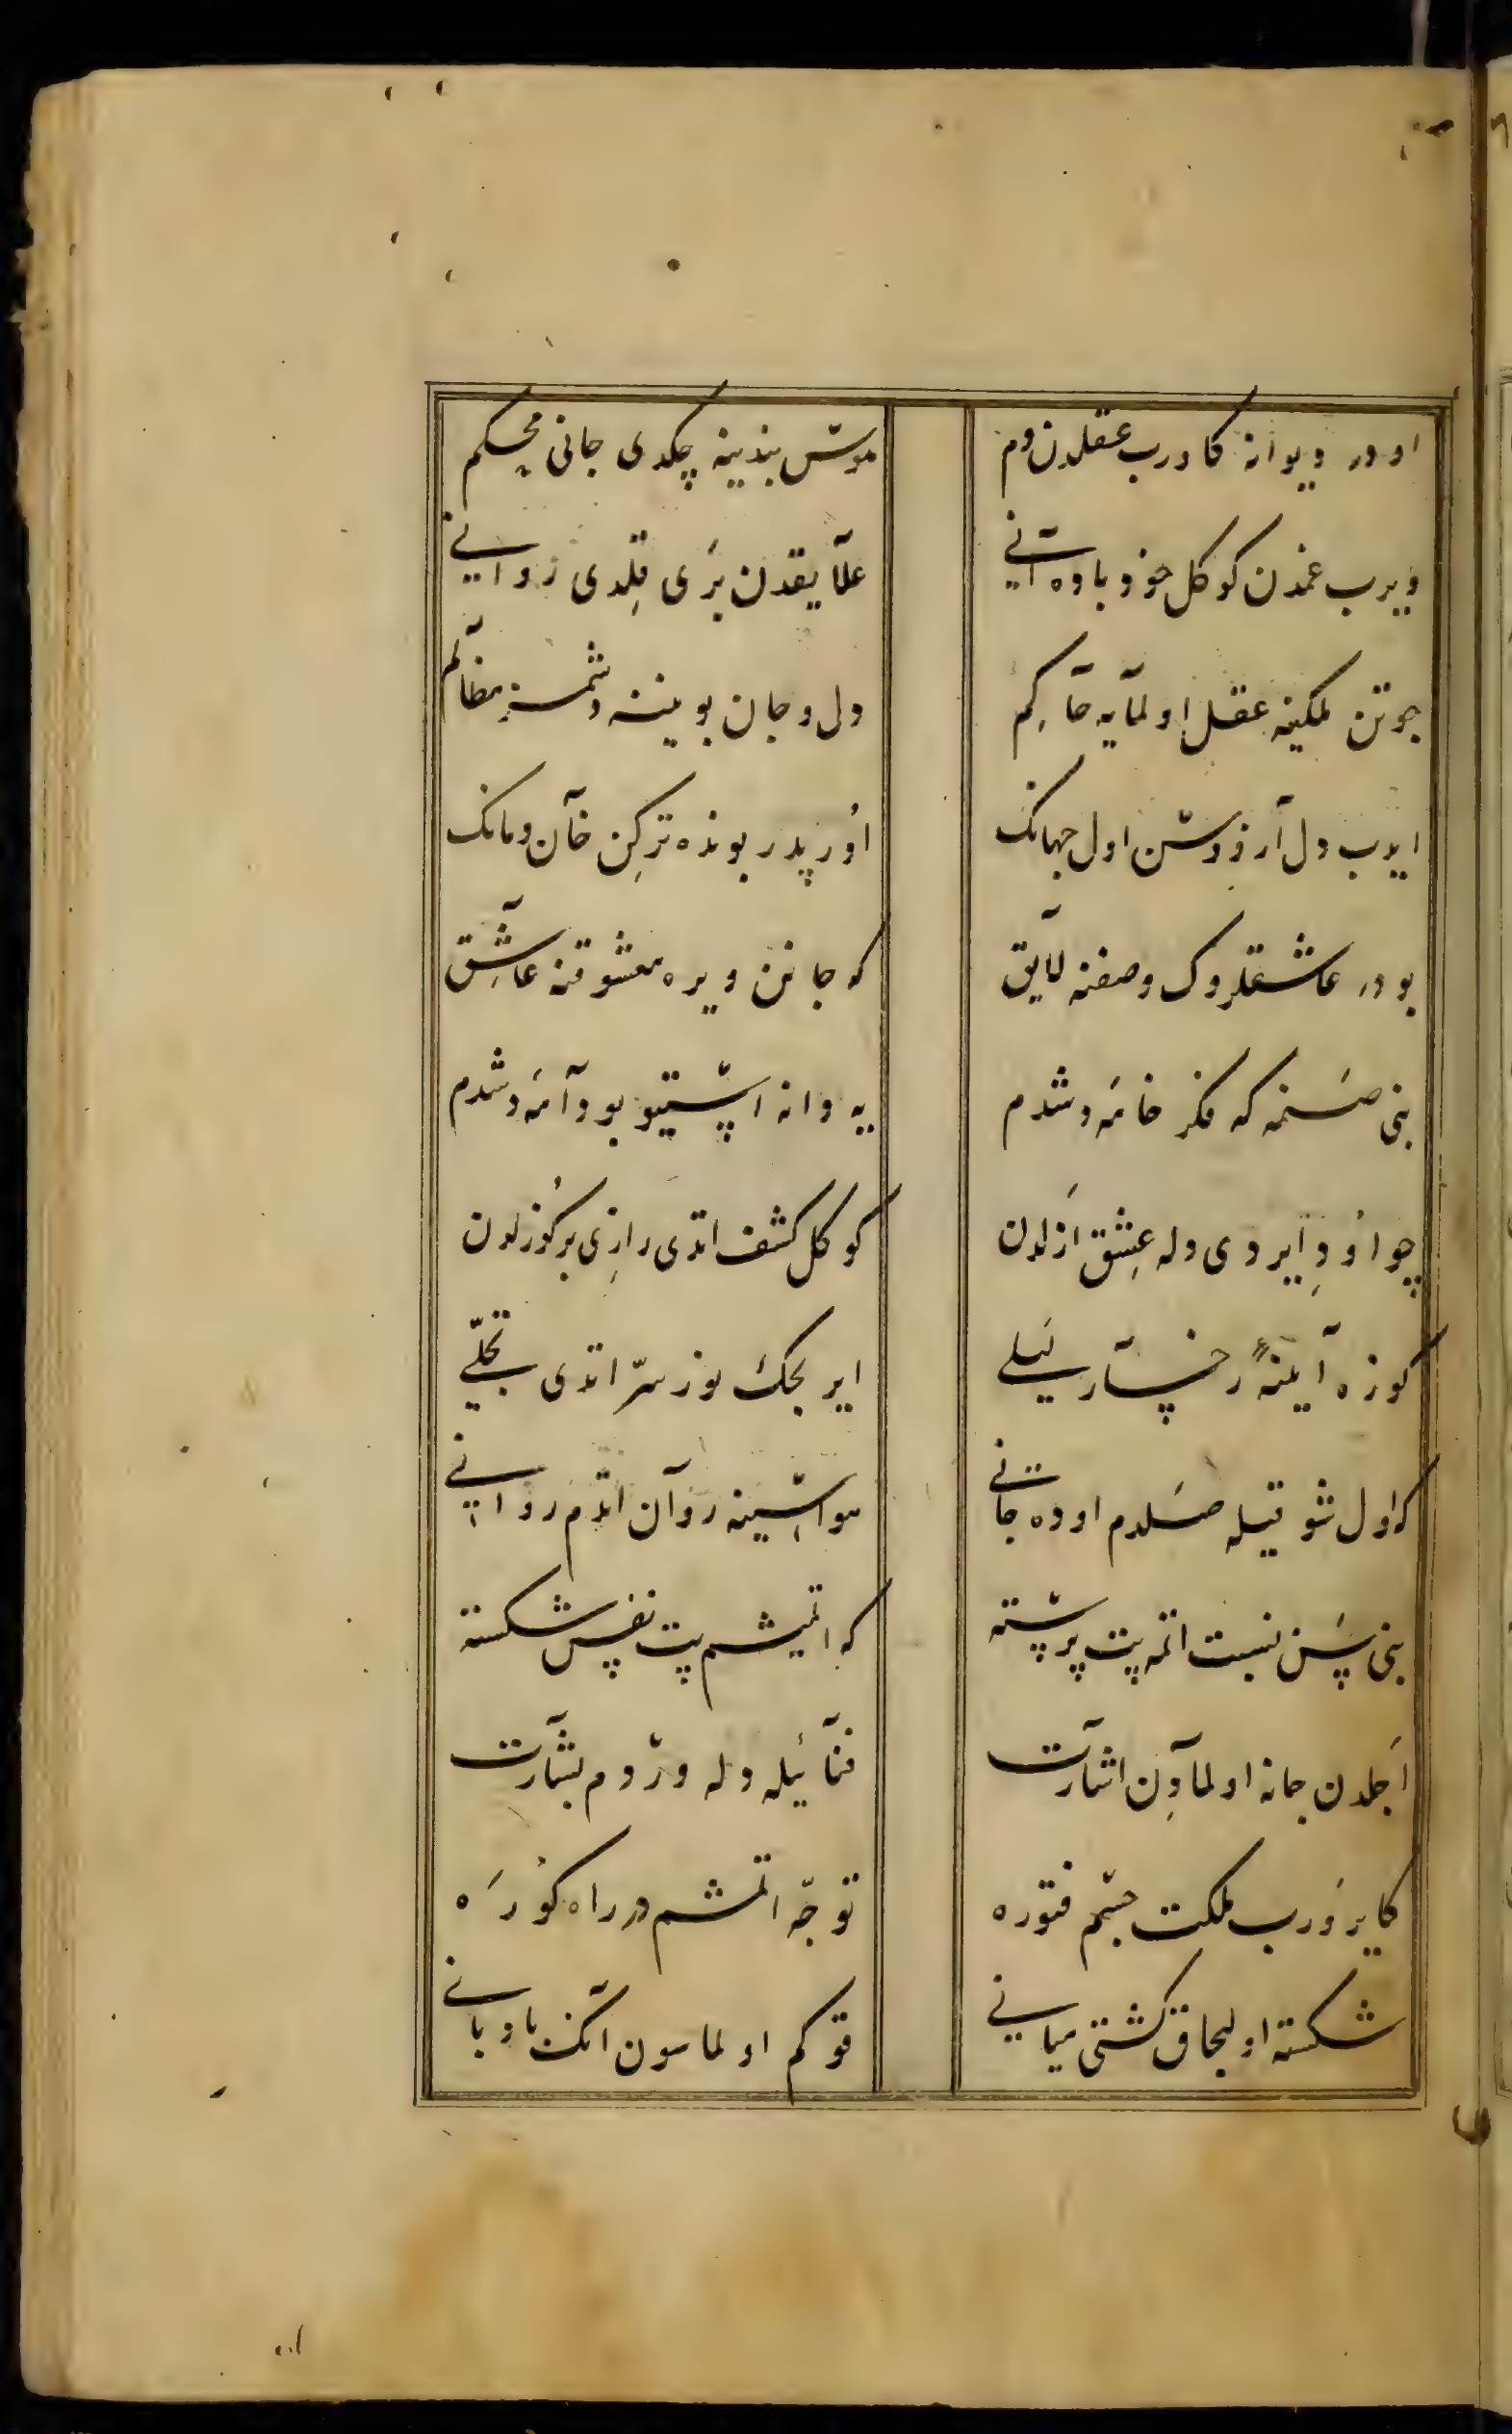 اودر ویوانه کا ورب عقلدن دم
هوش بندینه چکدی جانی محکم
ویرب غمدن کوکل خوذ باده آنی
علآیقدن بری قلدی روانی
چو تن ملکینه عقل اولمایه حاکم
دل و جان بوینـنه دشمز مظالم
ایدب دل آرزوسن اول جهانک
اور پدر بونده ترکن خان ومانک
بودر عاشقلروک وصفنه لایق
که جانن ویره معشوقنه عاشق
بنی صنمه که مکر خامه دشدم
یه دانه اشتیو بو دامه دشدم
چو اود ایردی دله عشق ازلدن
کوکل کشف اتدی رازی بر کوزلدن
کوزه آینهٔ رخسار لیلی
ایریجک نوز سرّ اتدی تجلّی
که اول شوقیله صلدم اوده جانی
هواسینه روان اتدم روانی
بنی سن نسبت اتمه بت پرسته
که اتمیشم بت نفس شکسته
اجلدن جانه اولمادن اشارت
فنآئیله دله وردم بشارت
کایر ورب ملکت جسم فتوره
توجّه اتمشم در راه کوره
شکسته اولیجاق کشتی میانی
قو کم اولماسون آنک بادبانی